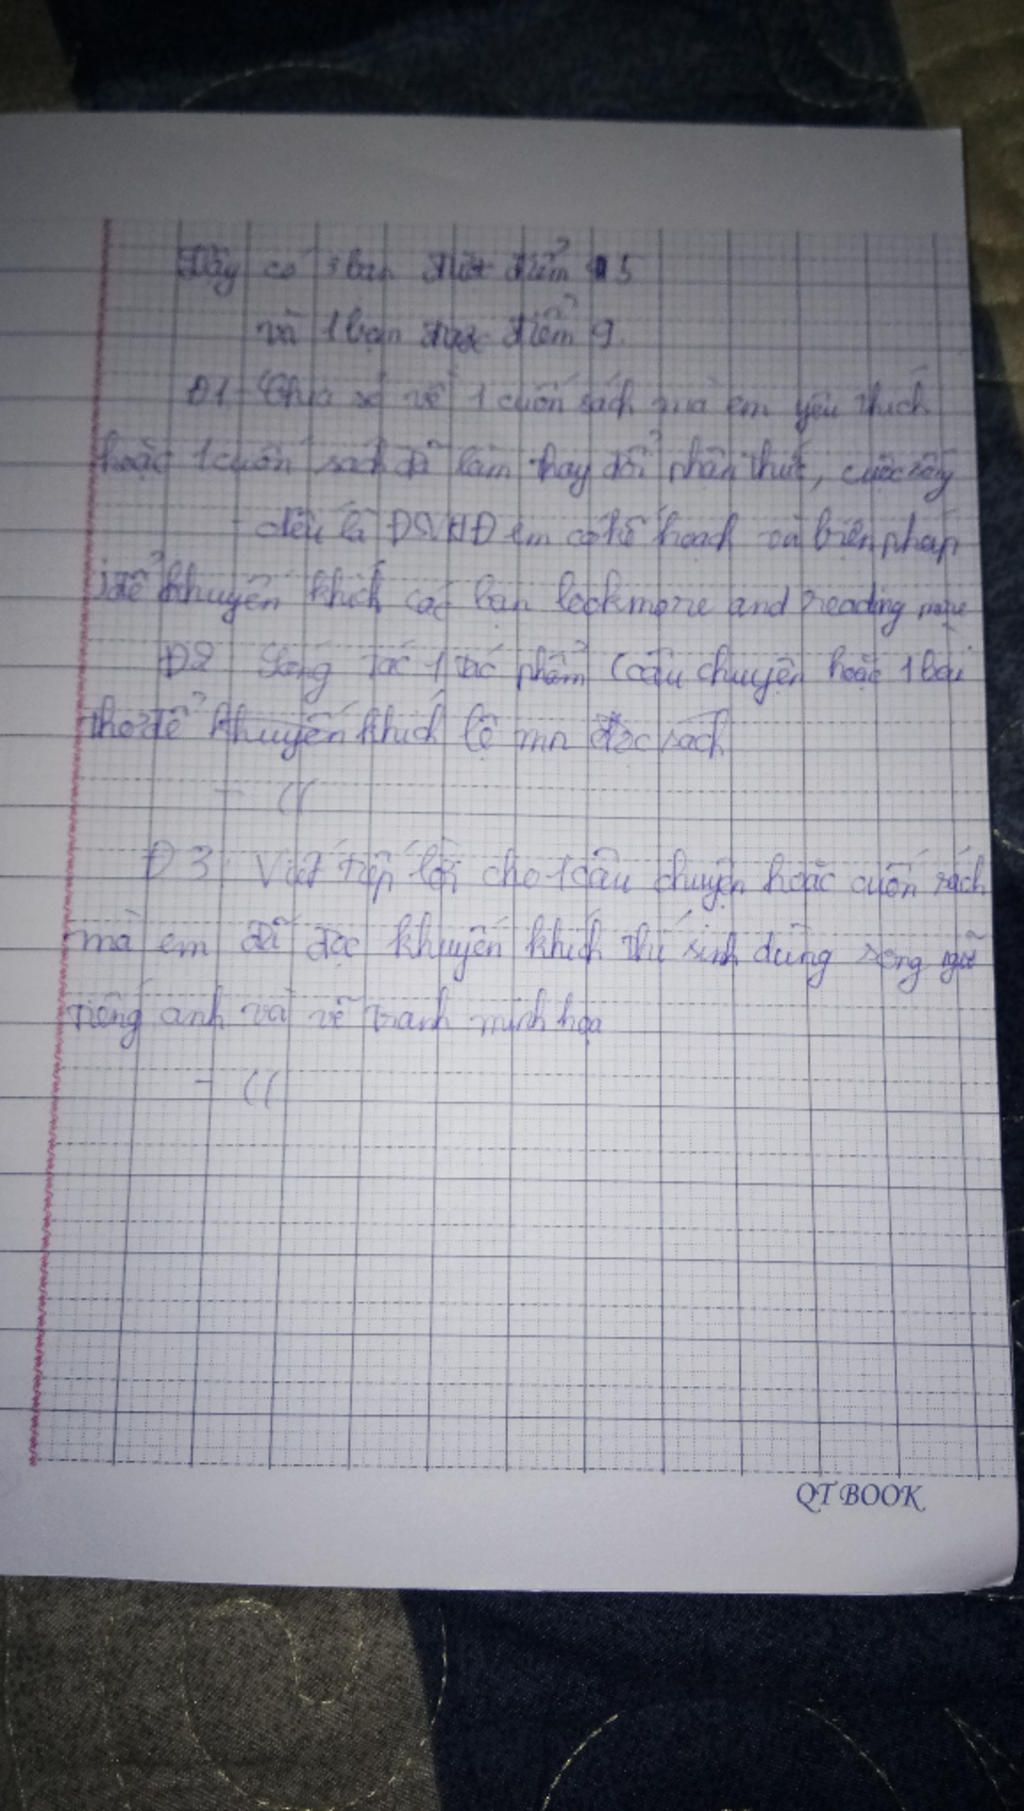 Đây có 3 bạn được điểm 5
và 1 bạn được điểm 9.
Đ1 Chia sẻ về 1 cuốn sách mà em yêu thích
hoặc 1 cuốn sách đã làm thay đổi nhận thức, cuộc sống
- Nếu là ĐSVHĐ em có kế hoạch và biện pháp
để khuyến khích các bạn lookmore and reading more
Đ2 Sáng tác 1 tác phẩm (câu chuyện hoặc 1 bài
thơ để khuyến khích mn đọc sách
- ((
Đ3 Viết tiếp lời cho 1 câu chuyện hoặc cuốn sách
mà em đã đọc khuyến khích thí sinh dùng song ngữ
tiếng anh và vẽ tranh minh họa
- ((
QT BOOK